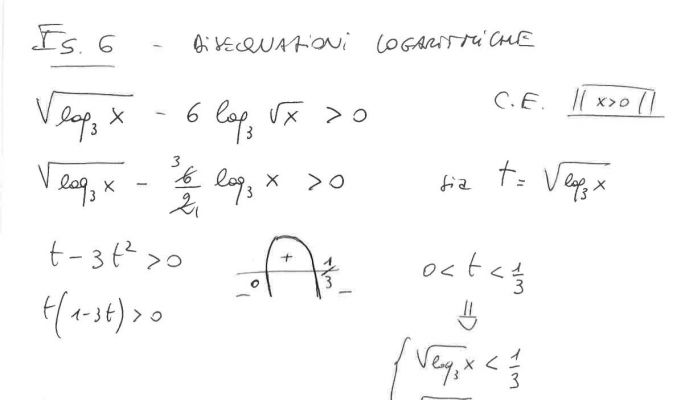 Es. 6 - DISEQUAZIONI LOGARITMICHE
√log₃ x - 6 log₃ √x > 0 C.E. || x>0 ||
√log₃ x - 6/2 log₃ x > 0 sia t = √log₃ x
3
1
t - 3t² > 0
+
0 1/3
- -
0 < t < 1/3
t(1-3t) > 0
⇓
{ √log₃ x < 1/3